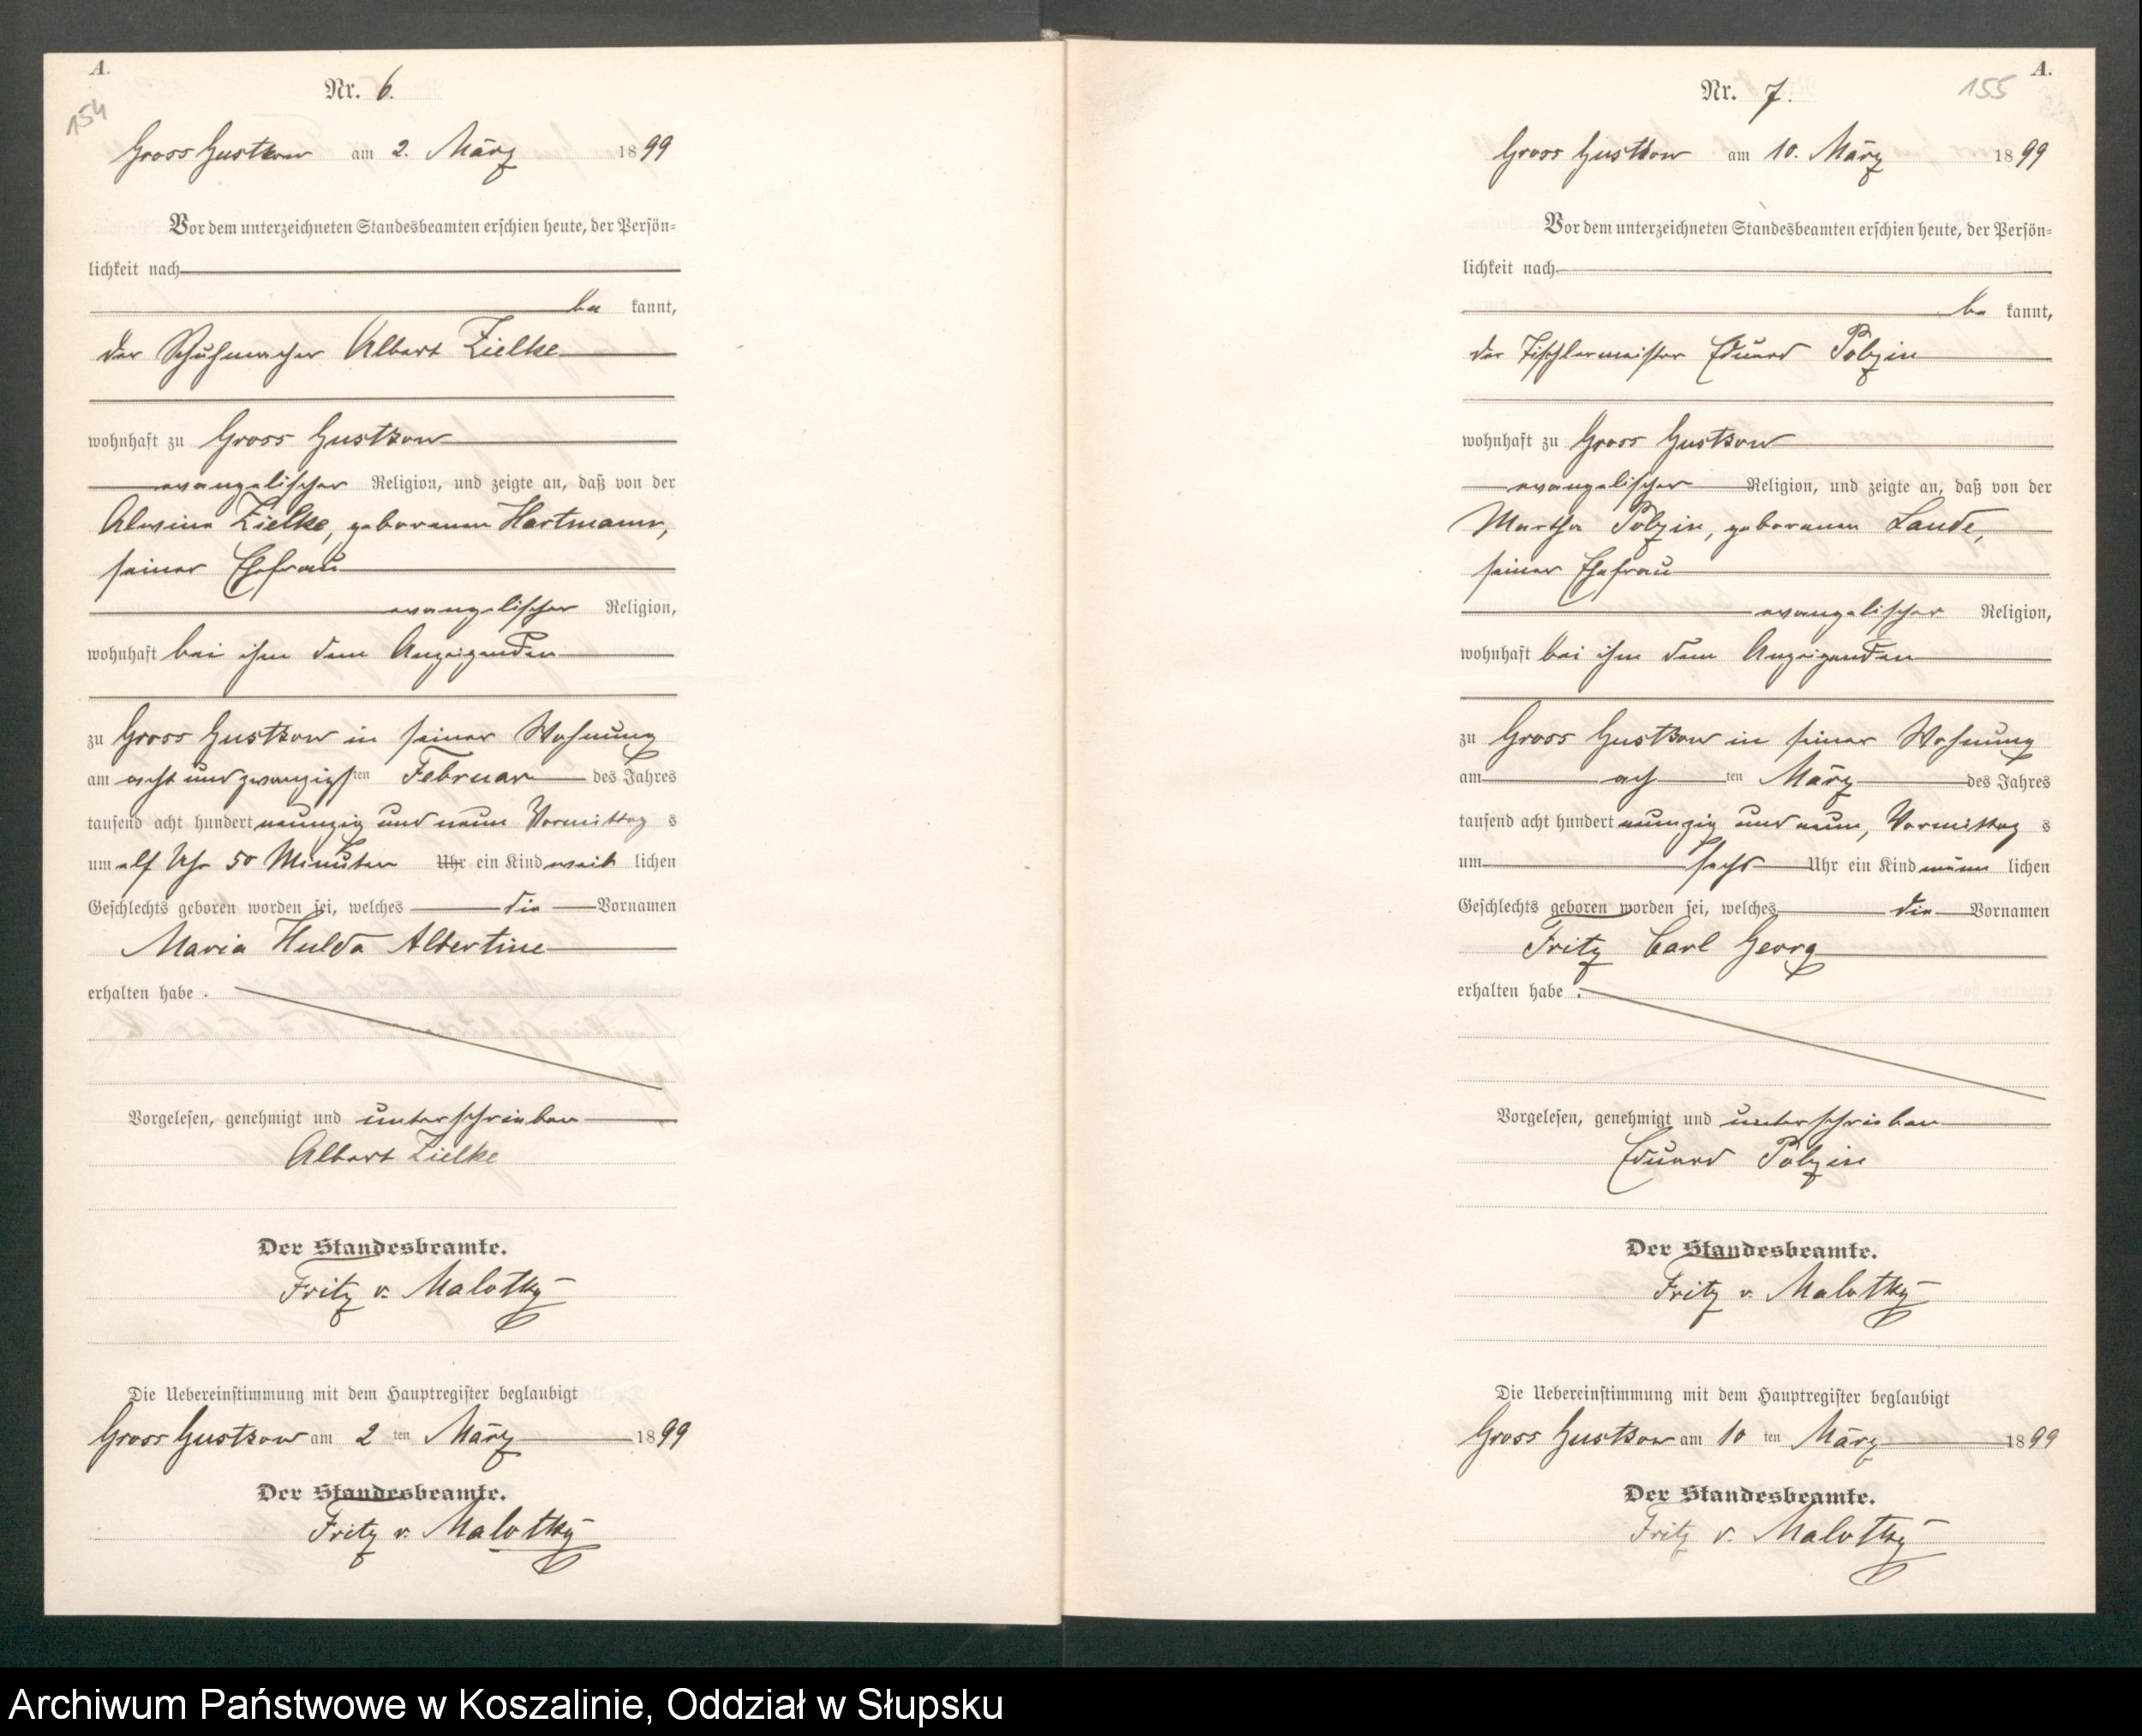 A.
154
Nr. 6.
Gross Gustkow am 2. März 1899
Vor dem unterzeichneten Standesbeamten erschien heute, der Persön=
lichkeit nach
be kannt,
der Schuhmacher Albert Zielke
wohnhaft zu Gross Gustkow
evangelischer Religion, und zeigte an, daß von der
Alwine Zielke, geborenen Hartmann,
seiner Ehefrau
evangelischer Religion,
wohnhaft bei ihm dem Anzeigenden
zu Gross Gustkow in seiner Wohnung
am acht und zwanzigsten Februar des Jahres
tausend acht hundert neunzig und neun Vormittag s
um elf Uhr 50 Minuten Uhr ein Kind weib lichen
Geschlechts geboren worden sei, welches die Vornamen
Maria Hulda Albertine
erhalten habe .
Vorgelesen, genehmigt und unterschrieben
Albert Zielke
Der Standesbeamte.
Fritz v. Malotky
Die Uebereinstimmung mit dem Hauptregister beglaubigt
Gross Gustkow am 2 ten März 1899
Der Standesbeamte.
Fritz v. Malotky
A.
155
Nr. 7.
Gross Gustkow am 10. März 1899
Vor dem unterzeichneten Standesbeamten erschien heute, der Persön=
lichkeit nach
be kannt,
der Tischlermeister Eduard Polzin
wohnhaft zu Gross Gustkow
evangelischer Religion, und zeigte an, daß von der
Martha Polzin, geborenen Lande,
seiner Ehefrau
evangelischer Religion,
wohnhaft bei ihm dem Anzeigenden
zu Gross Gustkow in seiner Wohnung
am ach ten März des Jahres
tausend acht hundert neunzig und neun, Vormittag s
um sechs Uhr ein Kind männ lichen
Geschlechts geboren worden sei, welches die Vornamen
Fritz Carl Georg
erhalten habe .
Vorgelesen, genehmigt und unterschrieben
Eduard Polzin
Der Standesbeamte.
Fritz v. Malotky
Die Uebereinstimmung mit dem Hauptregister beglaubigt
Gross Gustkow am 10 ten März 1899
Der Standesbeamte.
Fritz v. Malotky
Archiwum Państwowe w Koszalinie, Oddział w Słupsku